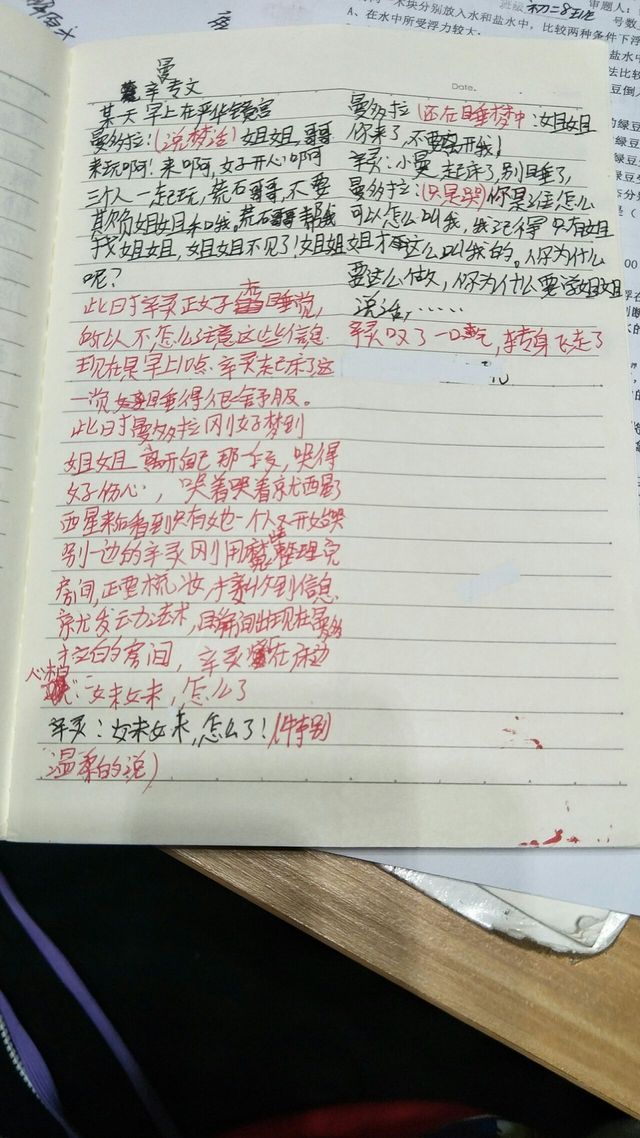 曼
辛专文
某天早上在严华镜宫
曼多拉:(说梦话)姐姐,哥哥
来玩啊!来啊,好开心啊
三个人一起玩,荒石哥哥,不要
欺负姐姐和我。荒石哥哥帮我
找姐姐,姐姐不见了!姐姐
呢?
此时辛灵正好在睡觉,
所以不怎么注意这些信息.
现在是早上10点.辛灵起床了这
一觉睡得很舒服。
此时曼多拉刚好梦到
姐姐离开自己那一夜,哭得
好伤心,哭着哭着就
来看到只有她一个人又开始哭
别一边的辛灵刚用魔法整理完
房间,正要梳妆,才接收到信息.
就发动法术,瞬间出现在曼多
拉的房间,辛灵在床边
心想:妹妹,怎么了
辛灵:妹妹,怎么了!(特别
温柔的说)
Date.
曼多拉(还在睡梦中:姐姐
你来了,不要离开我!
辛灵:小曼起床了,别睡了,
曼多拉:(只是哭)你是谁怎么
可以怎么叫我,我记得只有姐
姐才这么叫我的。你为什么
要这么做,你为什么要学姐姐
说话,……
辛灵叹了一口气,转身飞走了
班级初二8班
审题人:
号数
木块分别放入水和盐水中,比较两种条件下浮
A、在水中所受浮力较大。